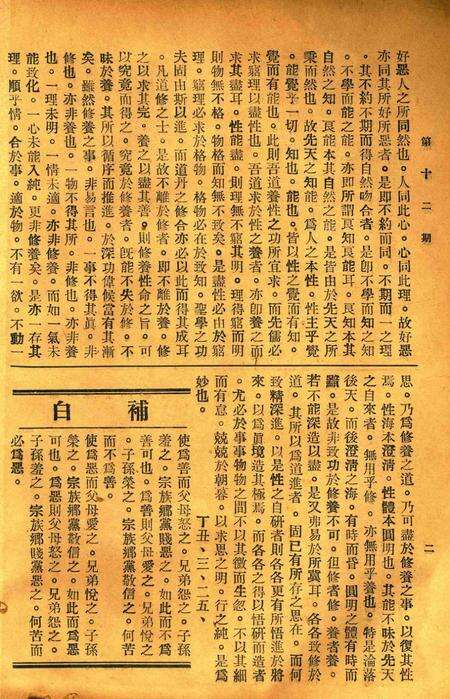 第十二期
二
好惡人之所同然也。人同此心。心同此理。故好惡
亦同其所好所惡者。是即不約而同。不期而一之理
。其不約不期而得自然吻合者。是卽不學而知之知
。不學而能之能。亦即所謂良知良能耳。良知本其
自然之知。良能本其自然之能。是皆由於先天之所
秉而然也。故先天之知能。爲人之本性。性主乎覺
。能覺乎一切。知也。能也。皆以性之覺而有知。
覺而有能也。此則吾道養性之功所宜求。而先儒必
求窮理以盡性也。吾道求於性之養者。亦卽養之而
求其盡耳。性能盡。則理無不窮其明。理得窮而明
則物無不格。物格而知無不致矣。是盡性必由於窮
理。窮理必求於格物。格物必在於致知。聖學之功
夫固由斯以進。而道丹之修合亦必以此而得其成耳
。凡道修之士。是故不離於修者。即不離於養。修
之以求其完。養之以盡其善。則修養性命之旨。可
以究竟而得之。究竟於修養者。旣能不失於修。不
昧於養。其所以循序而推進。於深功偉候當有其漸
矣。雖然修養之事。非易言也。一事不得其眞。非
修也。亦非養也。一物不得其所。非修也。亦非養
也。一理未明。一情未適。亦非修養。而如一氣未
能致化。一心未能入純。更非修養矣。是亦一存其
理。順乎情。合於事。適於物。不有一欲。不動一
思。乃爲修養之道。乃可盡於修養之事。以復其性
焉。性海本澄清。性體本圓明也。其能不昧於先天
之自來者。無用乎修。亦無用乎養也。特是淪落
後天。而後澄清之海。有時而昏。圓明之體有時而
翳。是故非致功於修養不可。但修者修。養者養。
若不能深造以盡。是又弗易於所冀耳。各各致修於
道。其所以爲道進者。固已有所存之思在。而何
致精深進。以是性之自研者則各各更有所悟進於將
來。以爲眞境造其極焉。而各各之得以悟研而造者
。尤必於事事物物之間不以其微而生忽。不以其細
而有怠。兢兢於朝暮。以求思之明。行之純。是爲
妙也。
丁丑、三、二五、
補白
使爲善而父母怒之。兄弟怨之。子孫
羞之。宗族鄉黨賤惡之。如此而不爲
善可也。爲善則父母愛之。兄弟悅之
。子孫榮之。宗族鄉黨敬信之。何苦
而不爲善。
使爲惡而父母愛之。兄弟悅之。子孫
榮之。宗族鄉黨敬信之。如此而爲惡
可也。爲惡則父母怒之。兄弟怨之。
子孫羞之。宗族鄉黨賤惡之。何苦而
必爲惡。